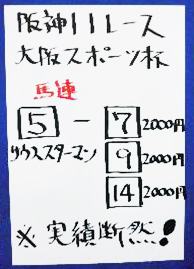 阪神11レース
大阪スポーツ杯
馬連
5 - 7 2000円
サウススターマン 9 2000円
14 2000円
※実績断然!